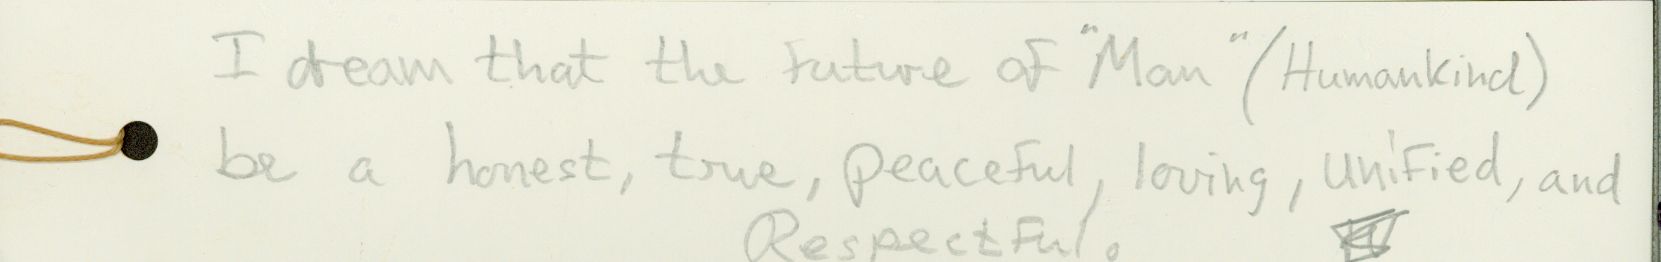 I dream that the future of "Man" (Humankind)
be a honest, true, peaceful, loving, unified, and
Respectful.